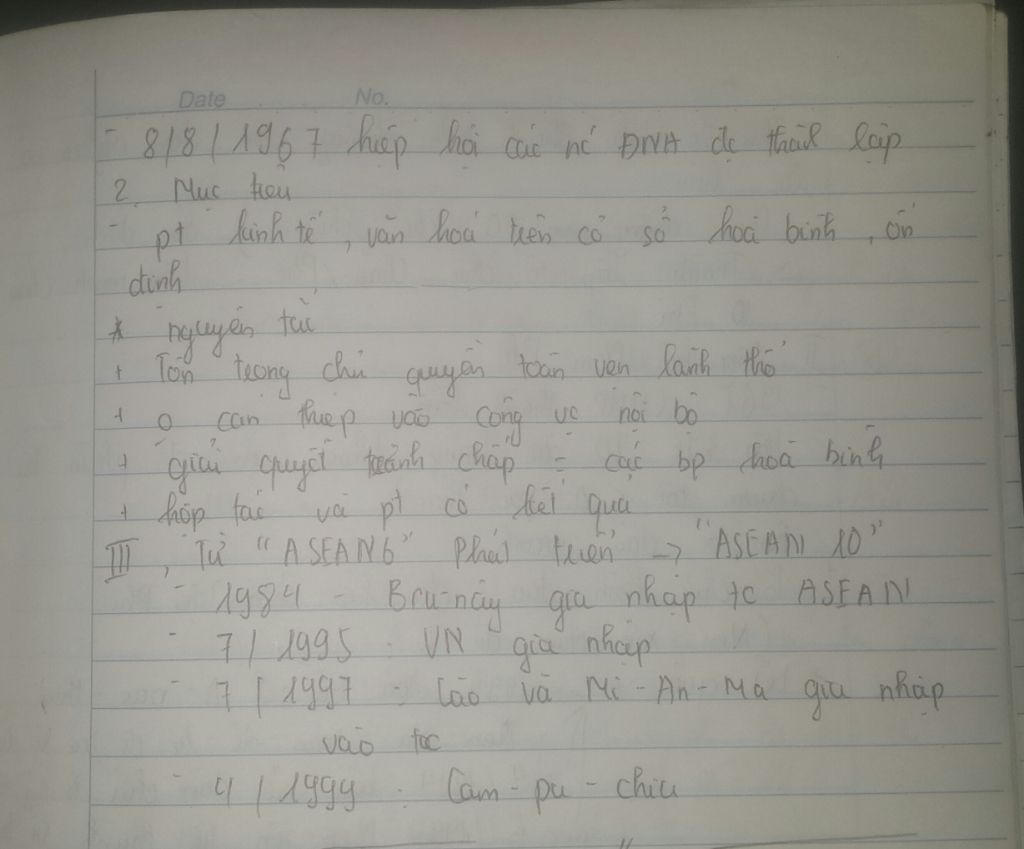 Date No.
- 8/8/1967 hiệp hội các nc ĐNA đc thành lập
2. Mục tiêu
- pt kinh tế, văn hoá trên cơ sở hoà bình, ổn
định
* nguyên tắc
+ Tôn trọng chủ quyền toàn vẹn lãnh thổ
+ o can thiệp vào công vc nội bộ
+ giải quyết tranh chấp = các bp hoà bình
+ hợp tác và pt có kết quả
III, Từ "ASEAN6" Phát triển → "ASEAN 10"
- 1984 - Bru-nây gia nhập tc ASEAN
- 7/1995: VN gia nhập
- 7/1997: Lào và Mi-An-Ma gia nhập
vào tc
- 4/1999: Cam-pu-chia